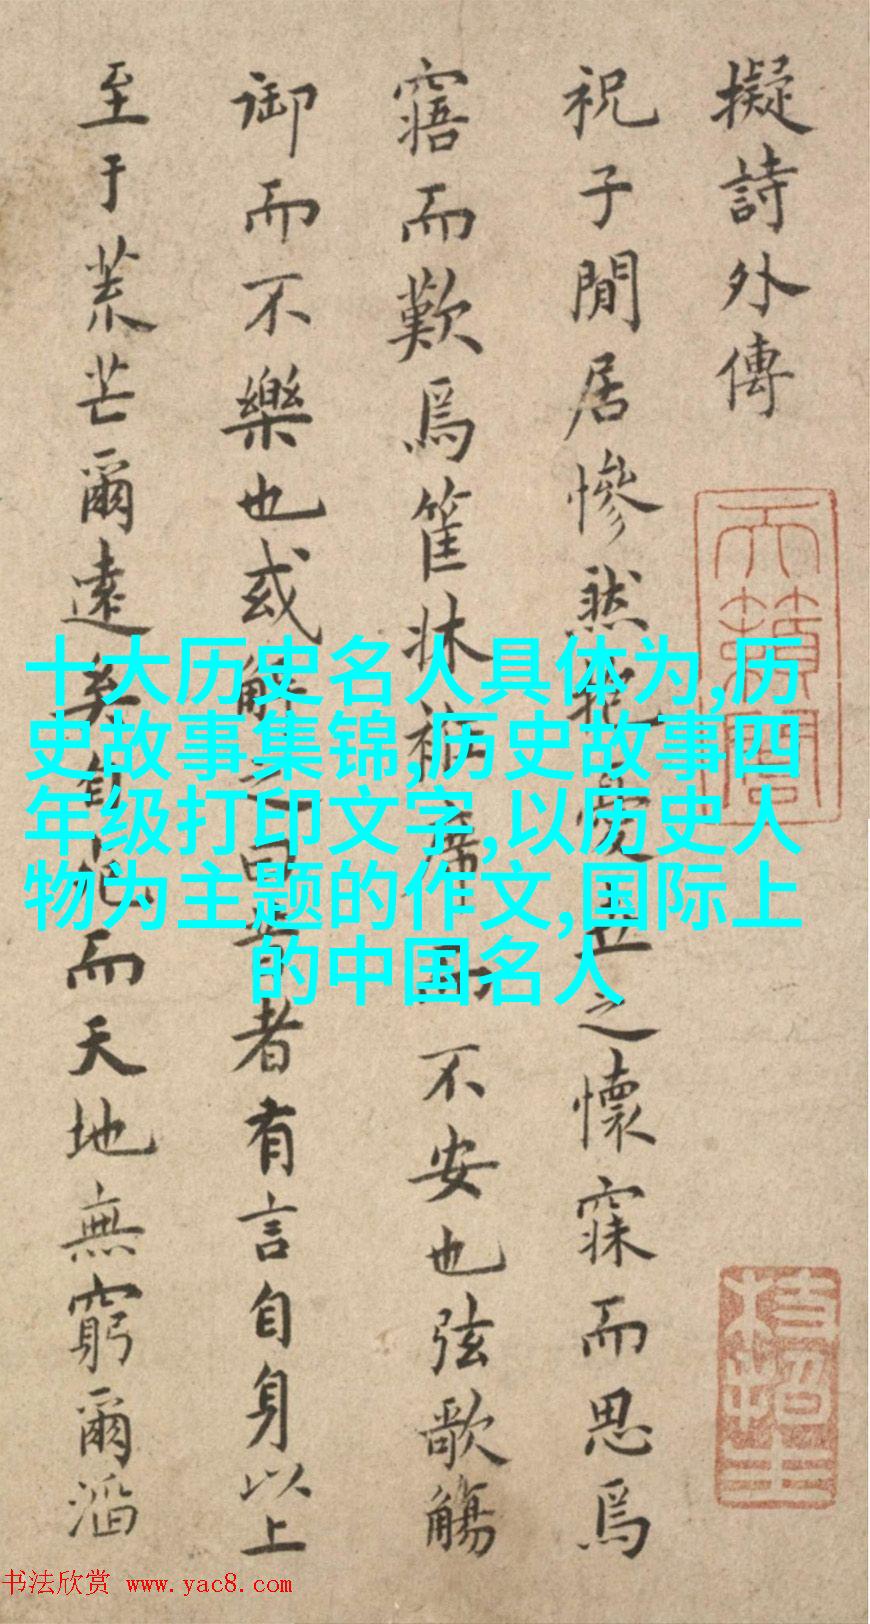 擬詩外傳
祝子閒居慘然抱憂世之懷寐而思焉
寤而歎焉筐牀衽席而不安也弦歌觴
御而不樂也或解之曰昔者有言自身以上
至于荒芒爾遠矣自死而天地無窮爾滔
天籟閣
十大历史名人具体为,历
史故事集锦,历史故事四
年级打印文字,以历史人
物为主题的作文,国际上
的中国名人
书法欣赏 www.yac8.com